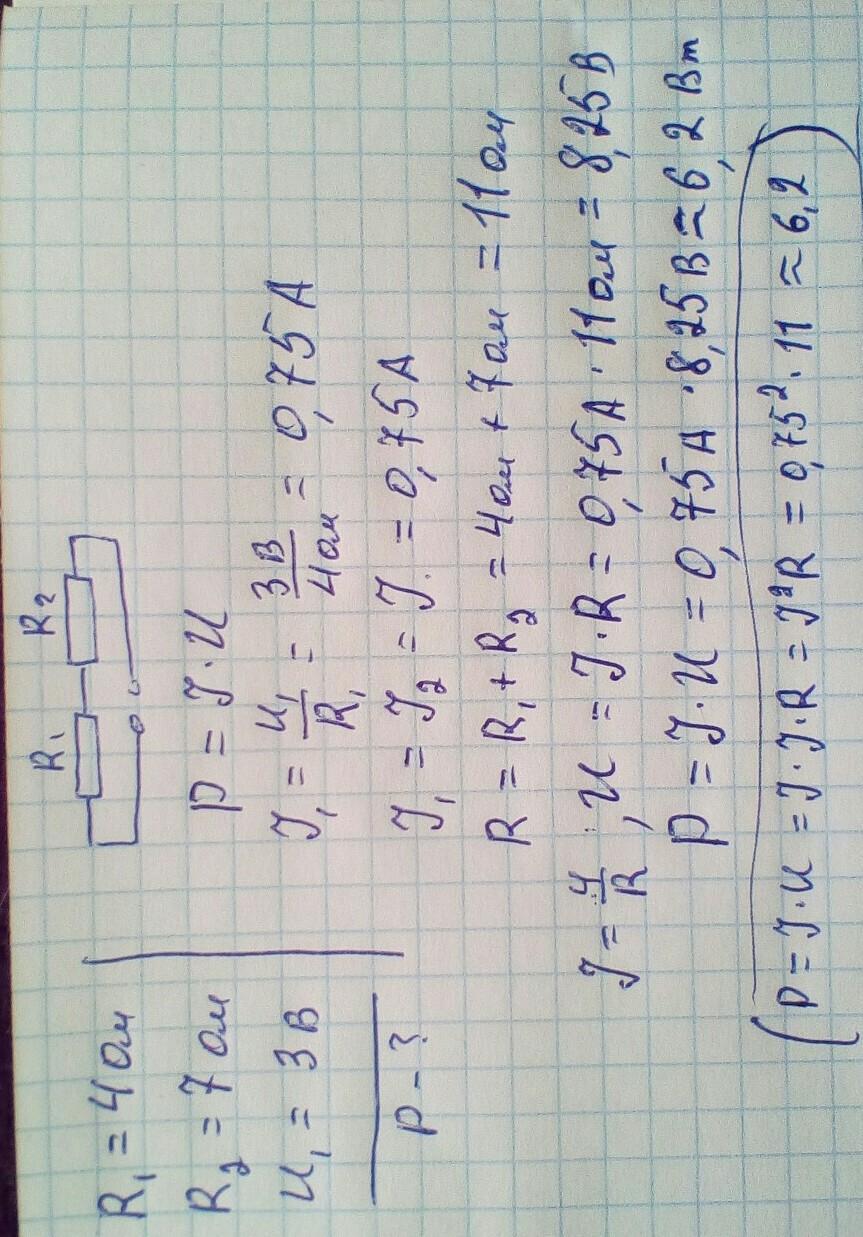 R₁ = 4 Ом
R₂ = 7 Ом
U₁ = 3 В
P - ?
R₁ R₂
P = J · U
J₁ = U₁/R₁ = 3 В/4 Ом = 0,75 А
J₁ = J₂ = J. = 0,75 А
R = R₁ + R₂ = 4 Ом + 7 Ом = 11 Ом
J = U/R ; U = J · R = 0,75 А · 11 Ом = 8,25 В
P = J · U = 0,75 А · 8,25 В ≈ 6,2 Вт
(P = J · U = J · J · R = J²R = 0,75² · 11 ≈ 6,2)